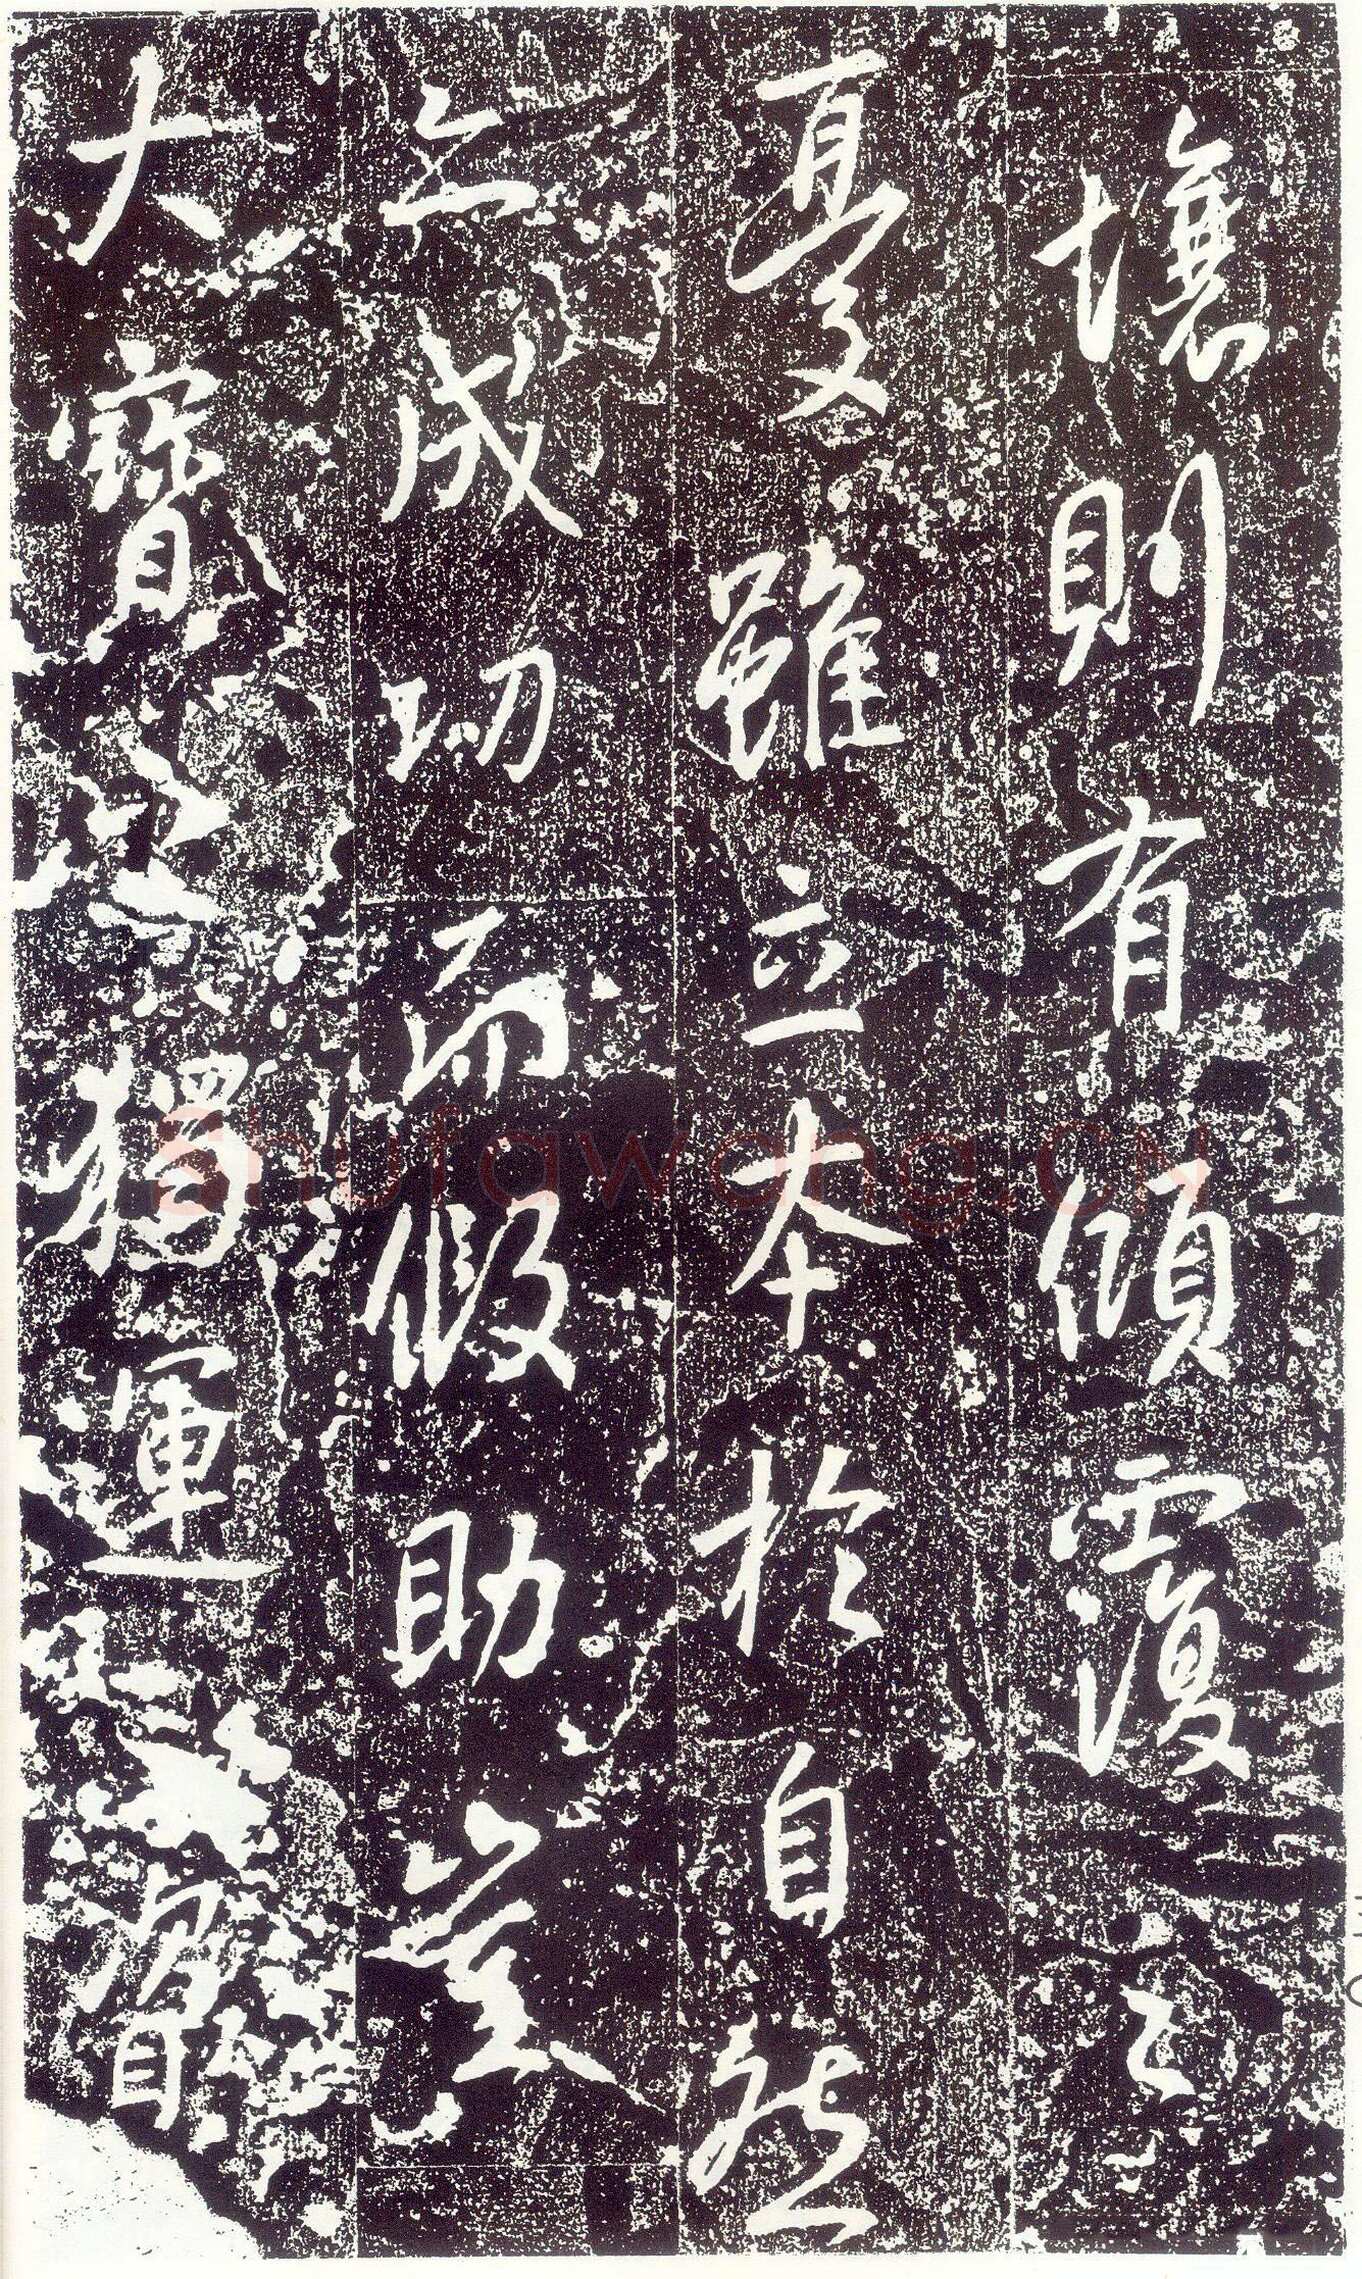 壤則有傾覆之
憂雖立本於自然
亦成功而假助豈
大寶獨運
Shufawang.CN